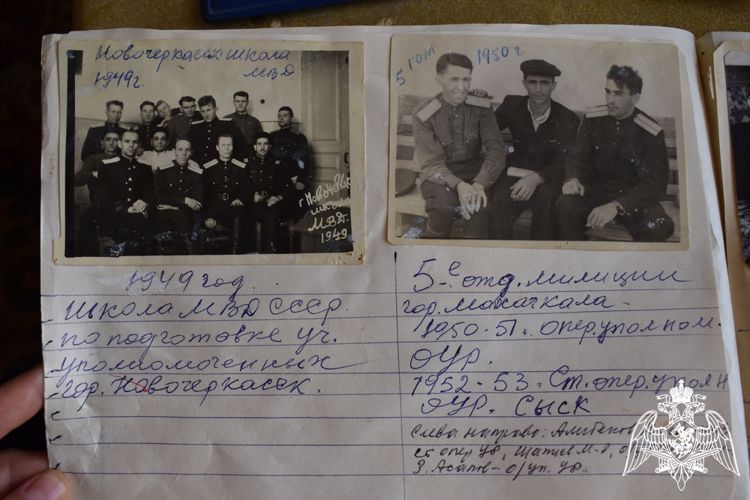 Новочеркасск школа
1949г. МВД
г Новочерк
школа
МВД.
1949
1949 год.
Школа МВД СССР.
по подготовке уч.
уполномоченных
гор. Новочеркасск.
5 гом 1950 г
5-е отд. милиции
гор. Махачкала -
1950-51г. опер. уполном.
ОУР.
1952-53. Ст. опер. уполн
ОУР. СЫСК
Слева направо:
ст опер УР, М-д,
З. Асалов - о/уп. УР.